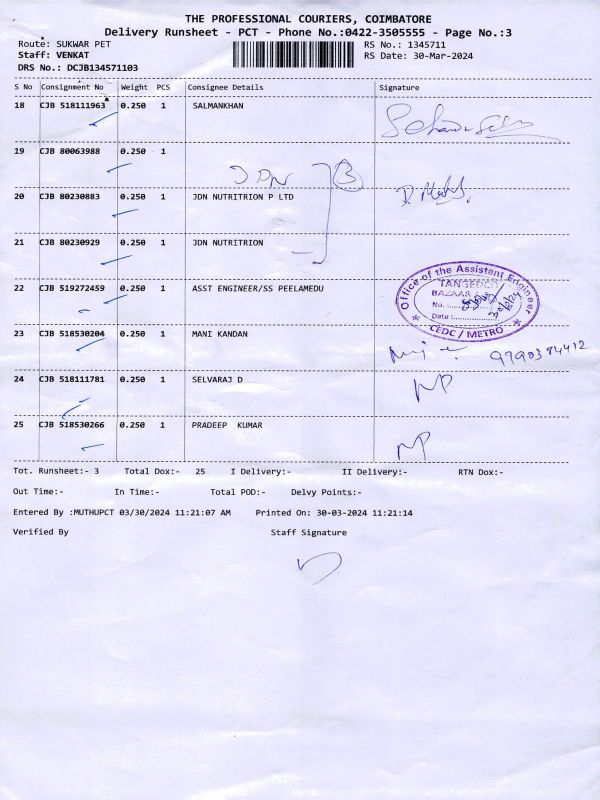 THE PROFESSIONAL COURIERS, COIMBATORE
Delivery Runsheet - PCT - Phone No.:0422-3505555 - Page No.:3
Route: SUKWAR PET RS No.: 1345711
Staff: VENKAT RS Date: 30-Mar-2024
DRS No.: DCJB134571103
S No Consignment No Weight PCS Consignee Details Signature
18 CJB 518111963 0.250 1 SALMANKHAN
19 CJB 80063988 0.250 1
JDN 3
20 CJB 80230883 0.250 1 JDN NUTRITRION P LTD
21 CJB 80230929 0.250 1 JDN NUTRITRION
22 CJB 519272459 0.250 1 ASST ENGINEER/SS PEELAMEDU
Office of the Assistant Engineer
TANGEDCO
BAZAAR
No.:
Date:
CEDC / METRO
23 CJB 518530204 0.250 1 MANI KANDAN
9790384412
24 CJB 518111781 0.250 1 SELVARAJ D
NP
25 CJB 518530266 0.250 1 PRADEEP KUMAR
NP
Tot. Runsheet:- 3 Total Dox:- 25 I Delivery:- II Delivery:- RTN Dox:-
Out Time:- In Time:- Total POD:- Delvy Points:-
Entered By :MUTHUPCT 03/30/2024 11:21:07 AM Printed On: 30-03-2024 11:21:14
Verified By Staff Signature